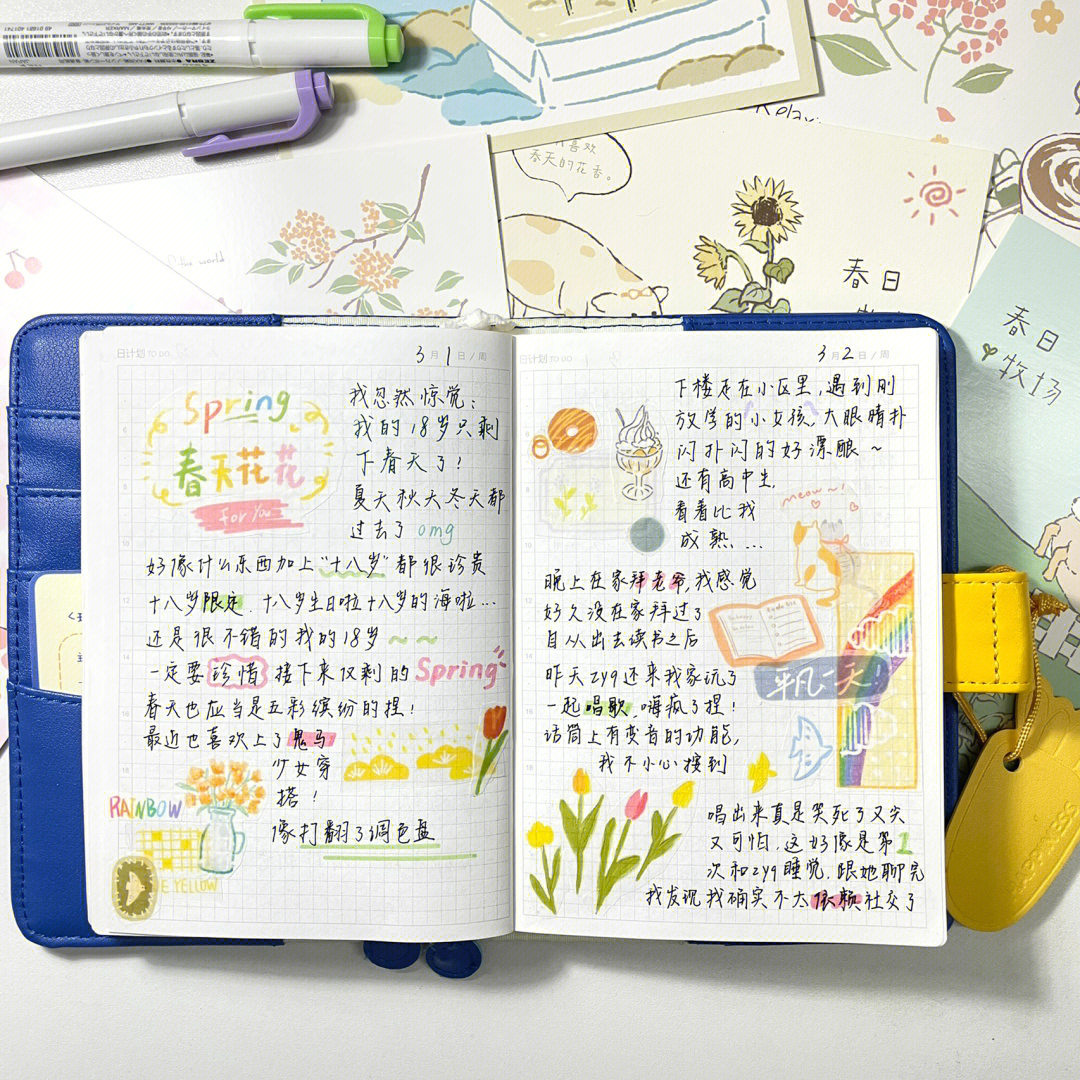 ZEBRA
春天的花香。
春日
春日
牧场
日计划 TO DO
3月1日/周
Spring
春天花花
For You
我忽然惊觉:
我的18岁只剩
下春天了!
夏天秋天冬天都
过去了 omg
好像什么东西加上"十八岁"都很珍贵
十八岁限定、十八岁生日啦十八岁的海啦...
还是很不错的我的18岁~~
一定要珍惜接下来仅剩的Spring
春天也应当是五彩缤纷的捏!
最近也喜欢上了鬼马
少女穿
搭!
像打翻了调色盘
RAINBOW
YELLOW
日计划 TO DO
3月2日/周
下楼走在小区里,遇到刚
放学的小女孩,大眼睛扑
闪扑闪的好漂酿~
还有高中生,
看着比我
成熟...
meow~!
晚上在家拜老爷,我感觉
好久没在家拜过了
自从出去读书之后
昨天zyq还来我家玩了
一起唱歌,嗨疯了捏!
话筒上有变音的功能,
我不小心摁到
平凡一天!
唱出来真是笑死了又尖
又可怕,这好像是第1
次和zyq睡觉,跟她聊完
我发现我确实不太依赖社交了